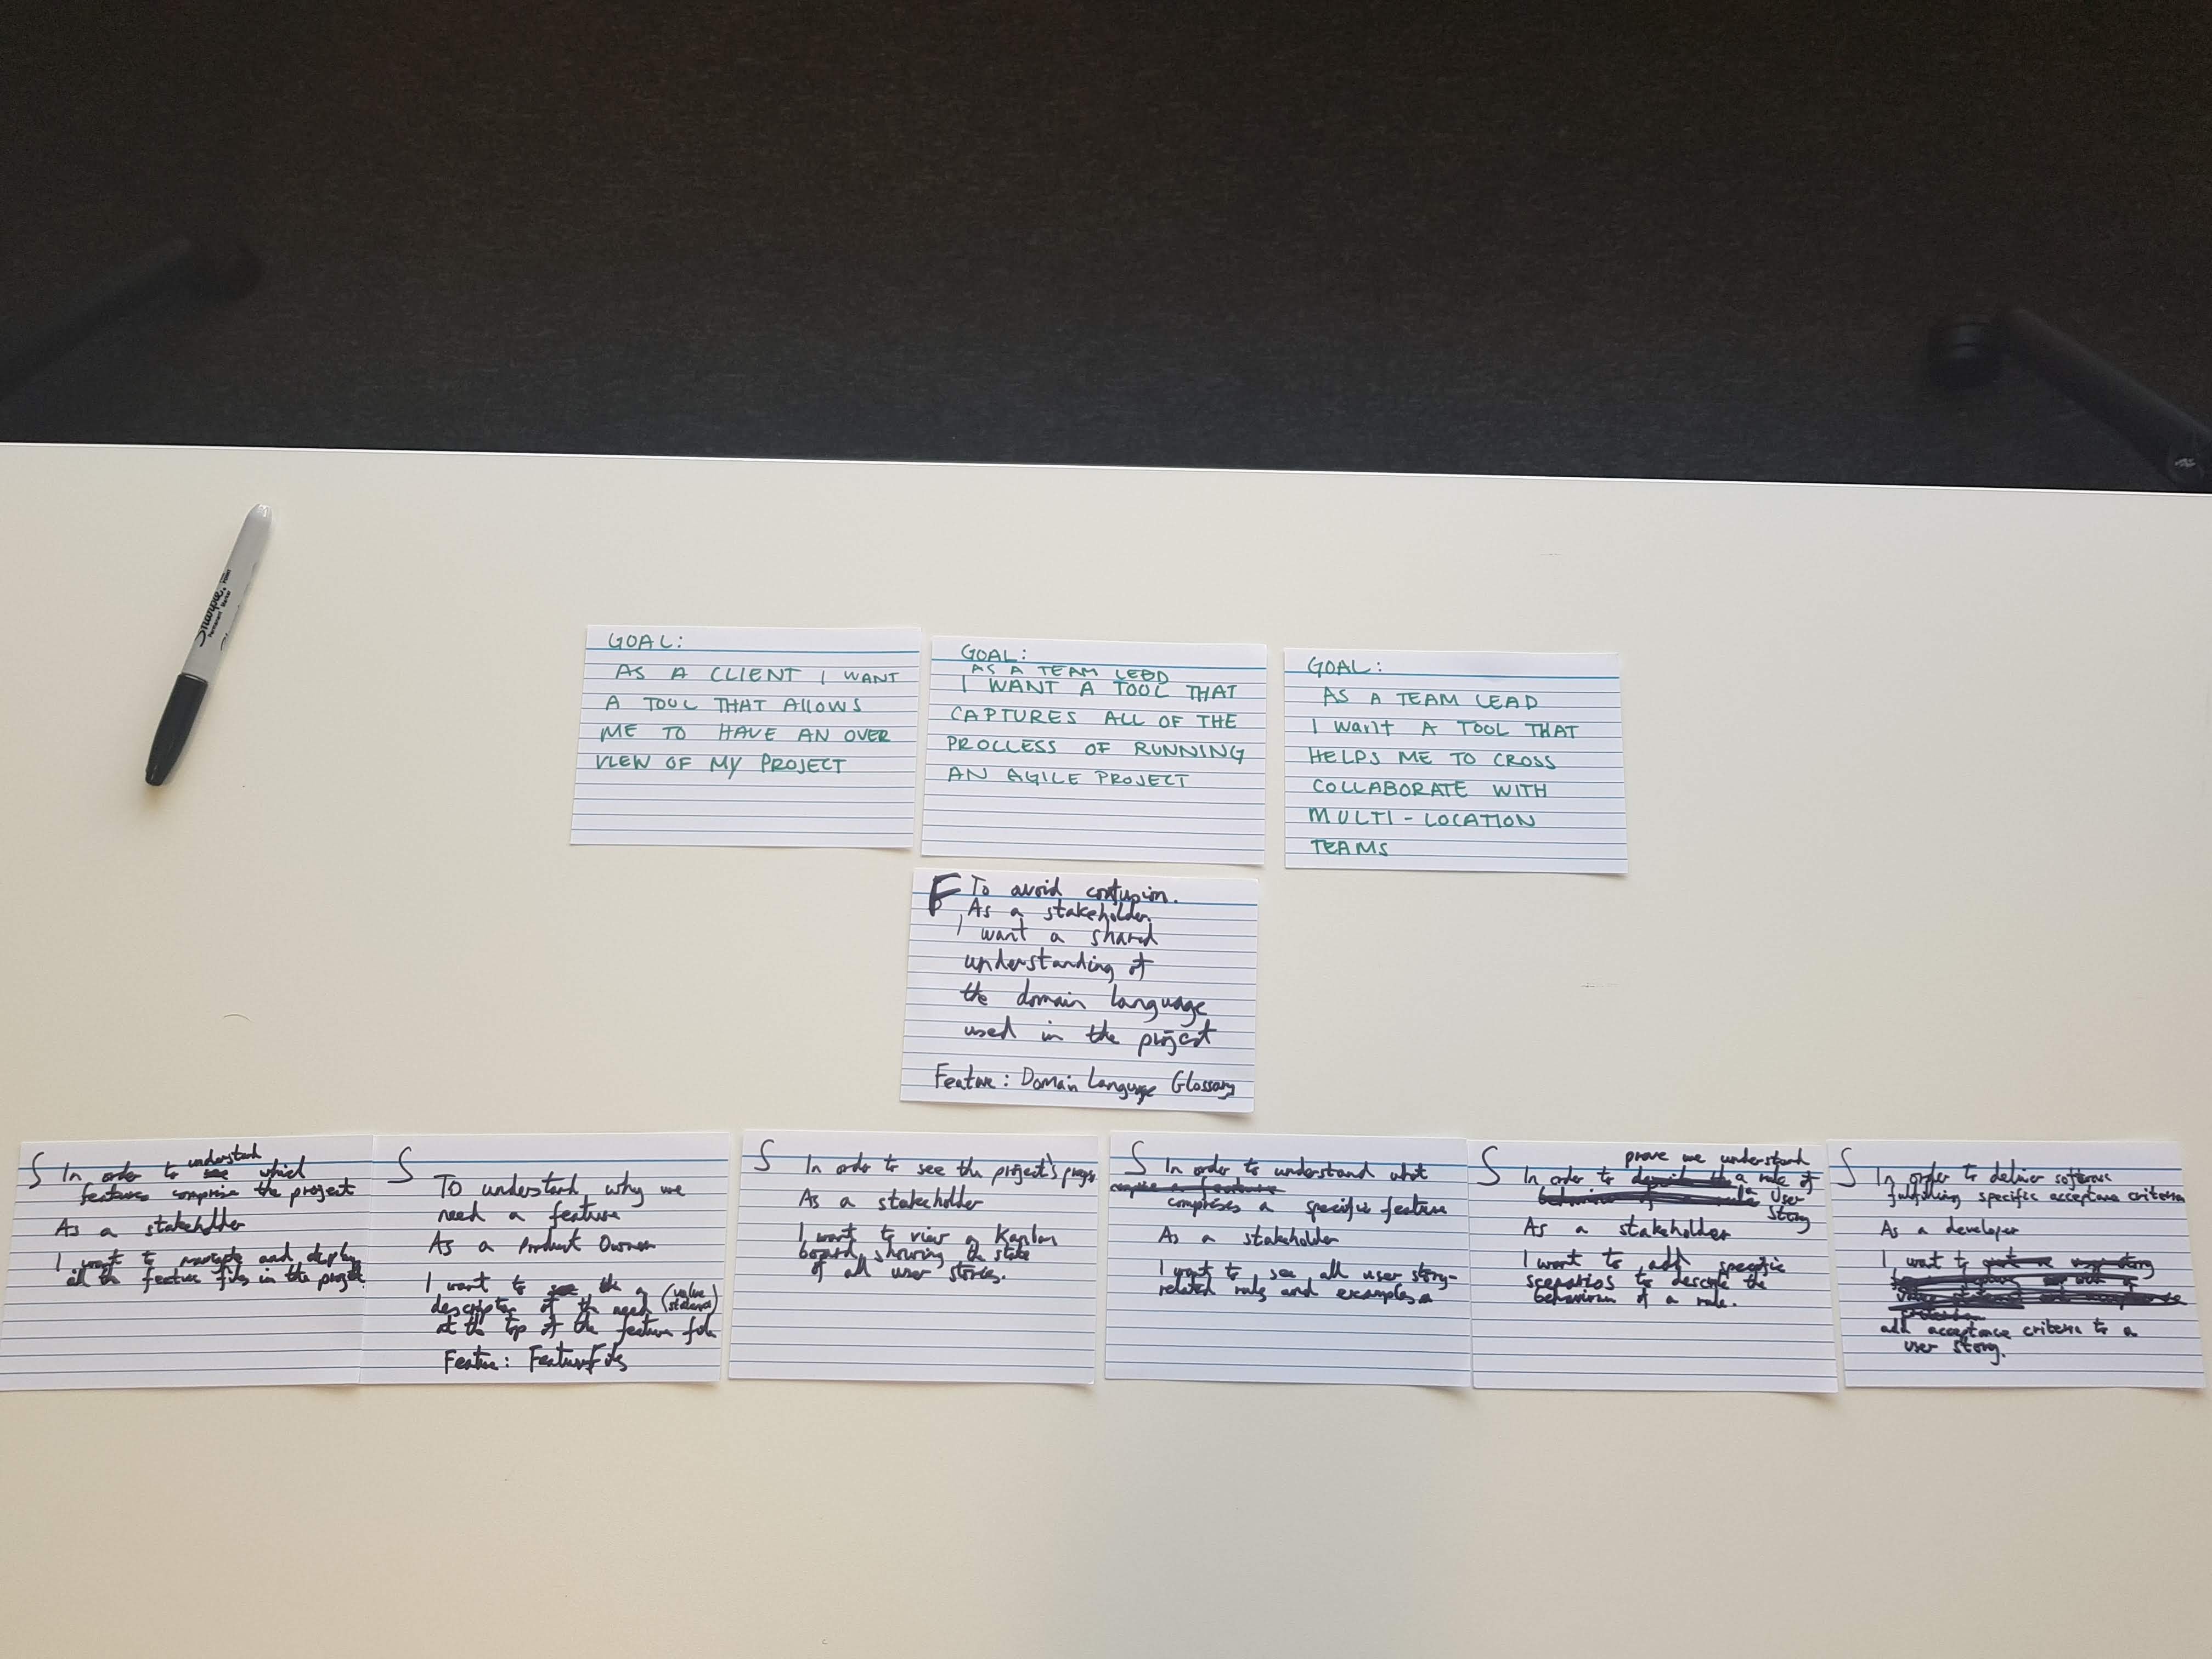 Sharpie
GOAL:
AS A CLIENT I WANT
A TOOL THAT ALLOWS
ME TO HAVE AN OVER
VIEW OF MY PROJECT
GOAL:
AS A TEAM LEAD
I WANT A TOOL THAT
CAPTURES ALL OF THE
PROLLESS OF RUNNING
AN AGILE PROJECT
GOAL:
AS A TEAM LEAD
I WANT A TOOL THAT
HELPS ME TO CROSS
COLLABORATE WITH
MULTI-LOCATION
TEAMS
F To avoid confusion.
As a stakeholder
I want a shared
understanding of
the domain language
used in the project
Feature: Domain Language Glossary
S In order to understand which
features comprise the project
As a stakeholder
I want to and
all the feature files in the project
S
To understand why we
need a feature
As a Product Owner
I want to see the a
description of the need (value statement)
at the top of the feature file
Feature: Feature Files
S In order to see the project's progress
As a stakeholder
I want to view a Kanban
board showing the state
of all user stories.
S In order to understand what
comprises a specific feature
As a stakeholder
I want to see all user story-
related rules and examples
S prove we understand
In order to a rule of
a user
story
As a stakeholder
I want to add specific
scenarios to describe the
behaviour of a rule.
S In order to deliver software
fulfilling specific acceptance criteria
As a developer
I want to
add acceptance criteria to a
user story.